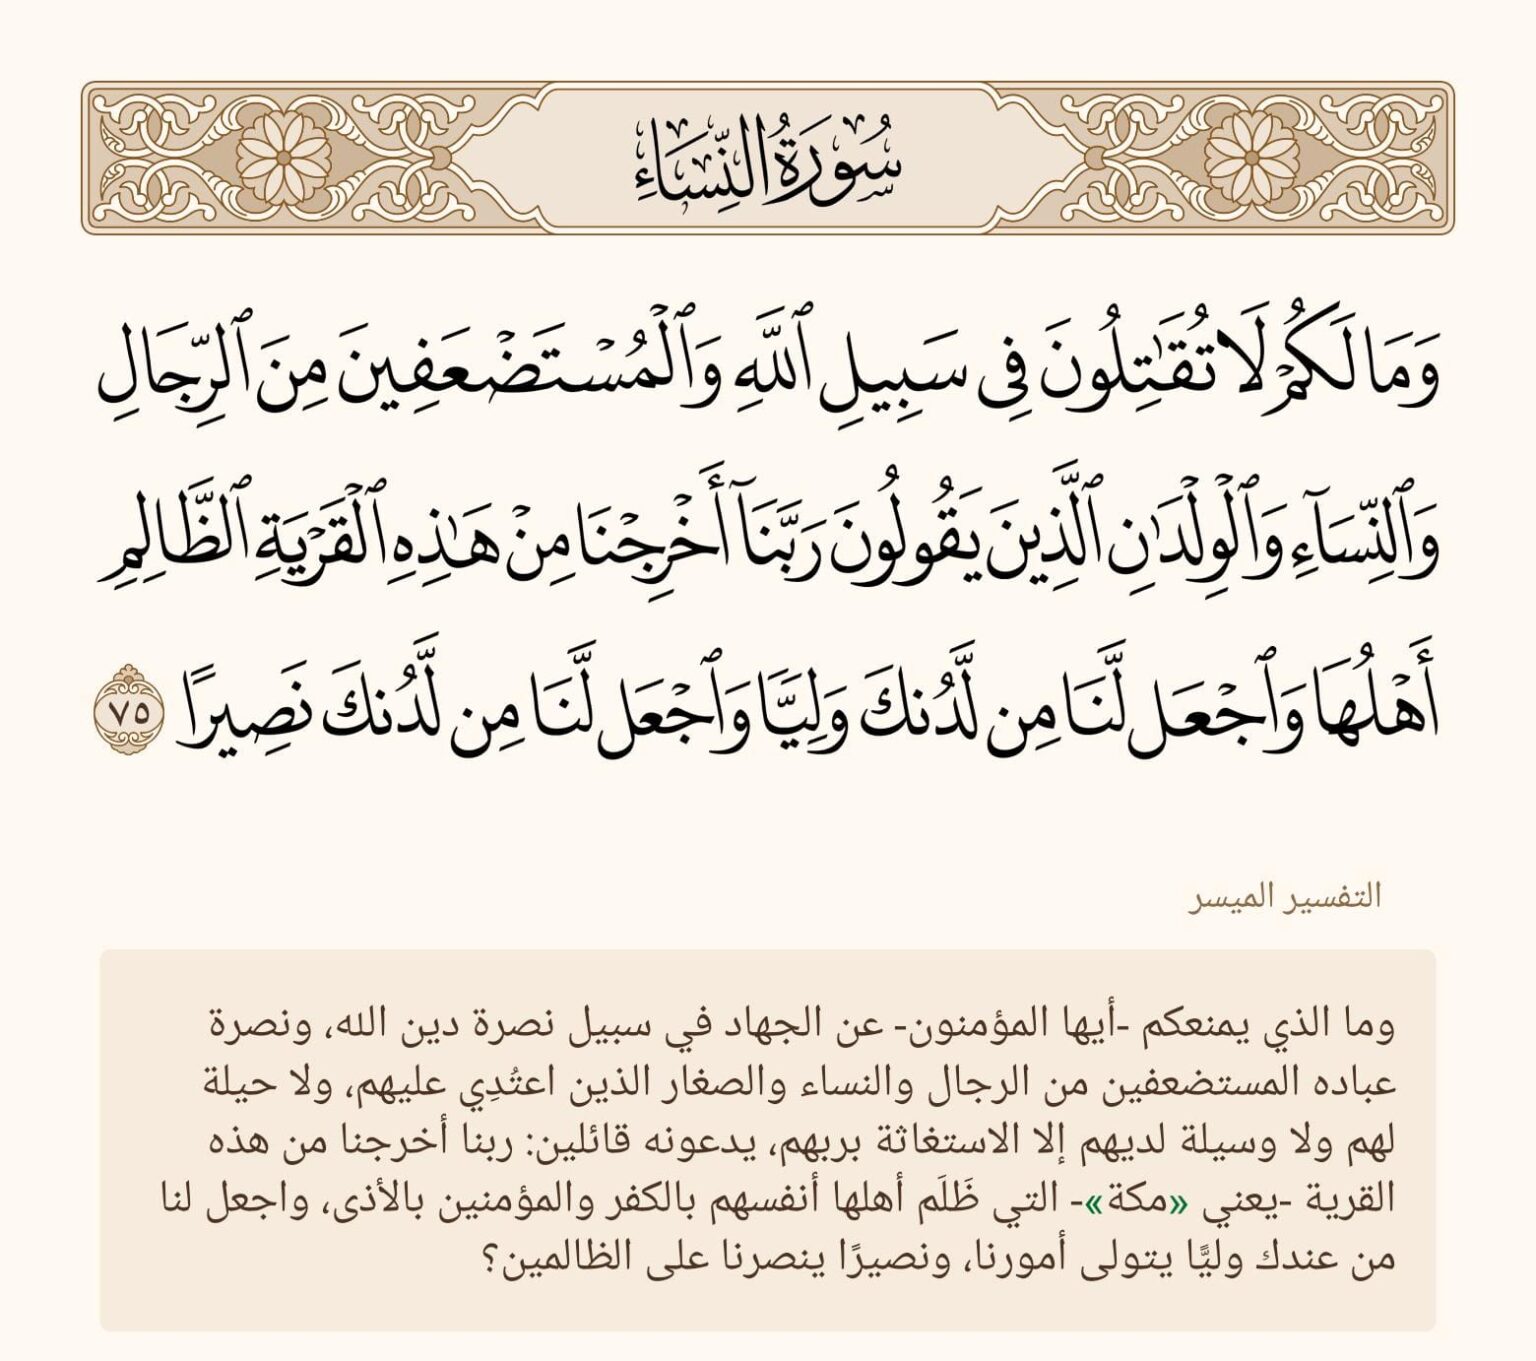 سُورَةُ النِّسَاءِ
وَمَا لَكُمْ لَا تُقَٰتِلُونَ فِى سَبِيلِ ٱللَّهِ وَٱلْمُسْتَضْعَفِينَ مِنَ ٱلرِّجَالِ
وَٱلنِّسَآءِ وَٱلْوِلْدَٰنِ ٱلَّذِينَ يَقُولُونَ رَبَّنَآ أَخْرِجْنَا مِنْ هَٰذِهِ ٱلْقَرْيَةِ ٱلظَّالِمِ
أَهْلُهَا وَٱجْعَل لَّنَا مِن لَّدُنكَ وَلِيًّا وَٱجْعَل لَّنَا مِن لَّدُنكَ نَصِيرًا ٧٥
التفسير الميسر
وما الذي يمنعكم -أيها المؤمنون- عن الجهاد في سبيل نصرة دين الله، ونصرة
عباده المستضعفين من الرجال والنساء والصغار الذين اعتُدِي عليهم، ولا حيلة
لهم ولا وسيلة لديهم إلا الاستغاثة بربهم، يدعونه قائلين: ربنا أخرجنا من هذه
القرية -يعني «مكة»- التي ظَلَم أهلها أنفسهم بالكفر والمؤمنين بالأذى، واجعل لنا
من عندك وليًّا يتولى أمورنا، ونصيرًا ينصرنا على الظالمين؟